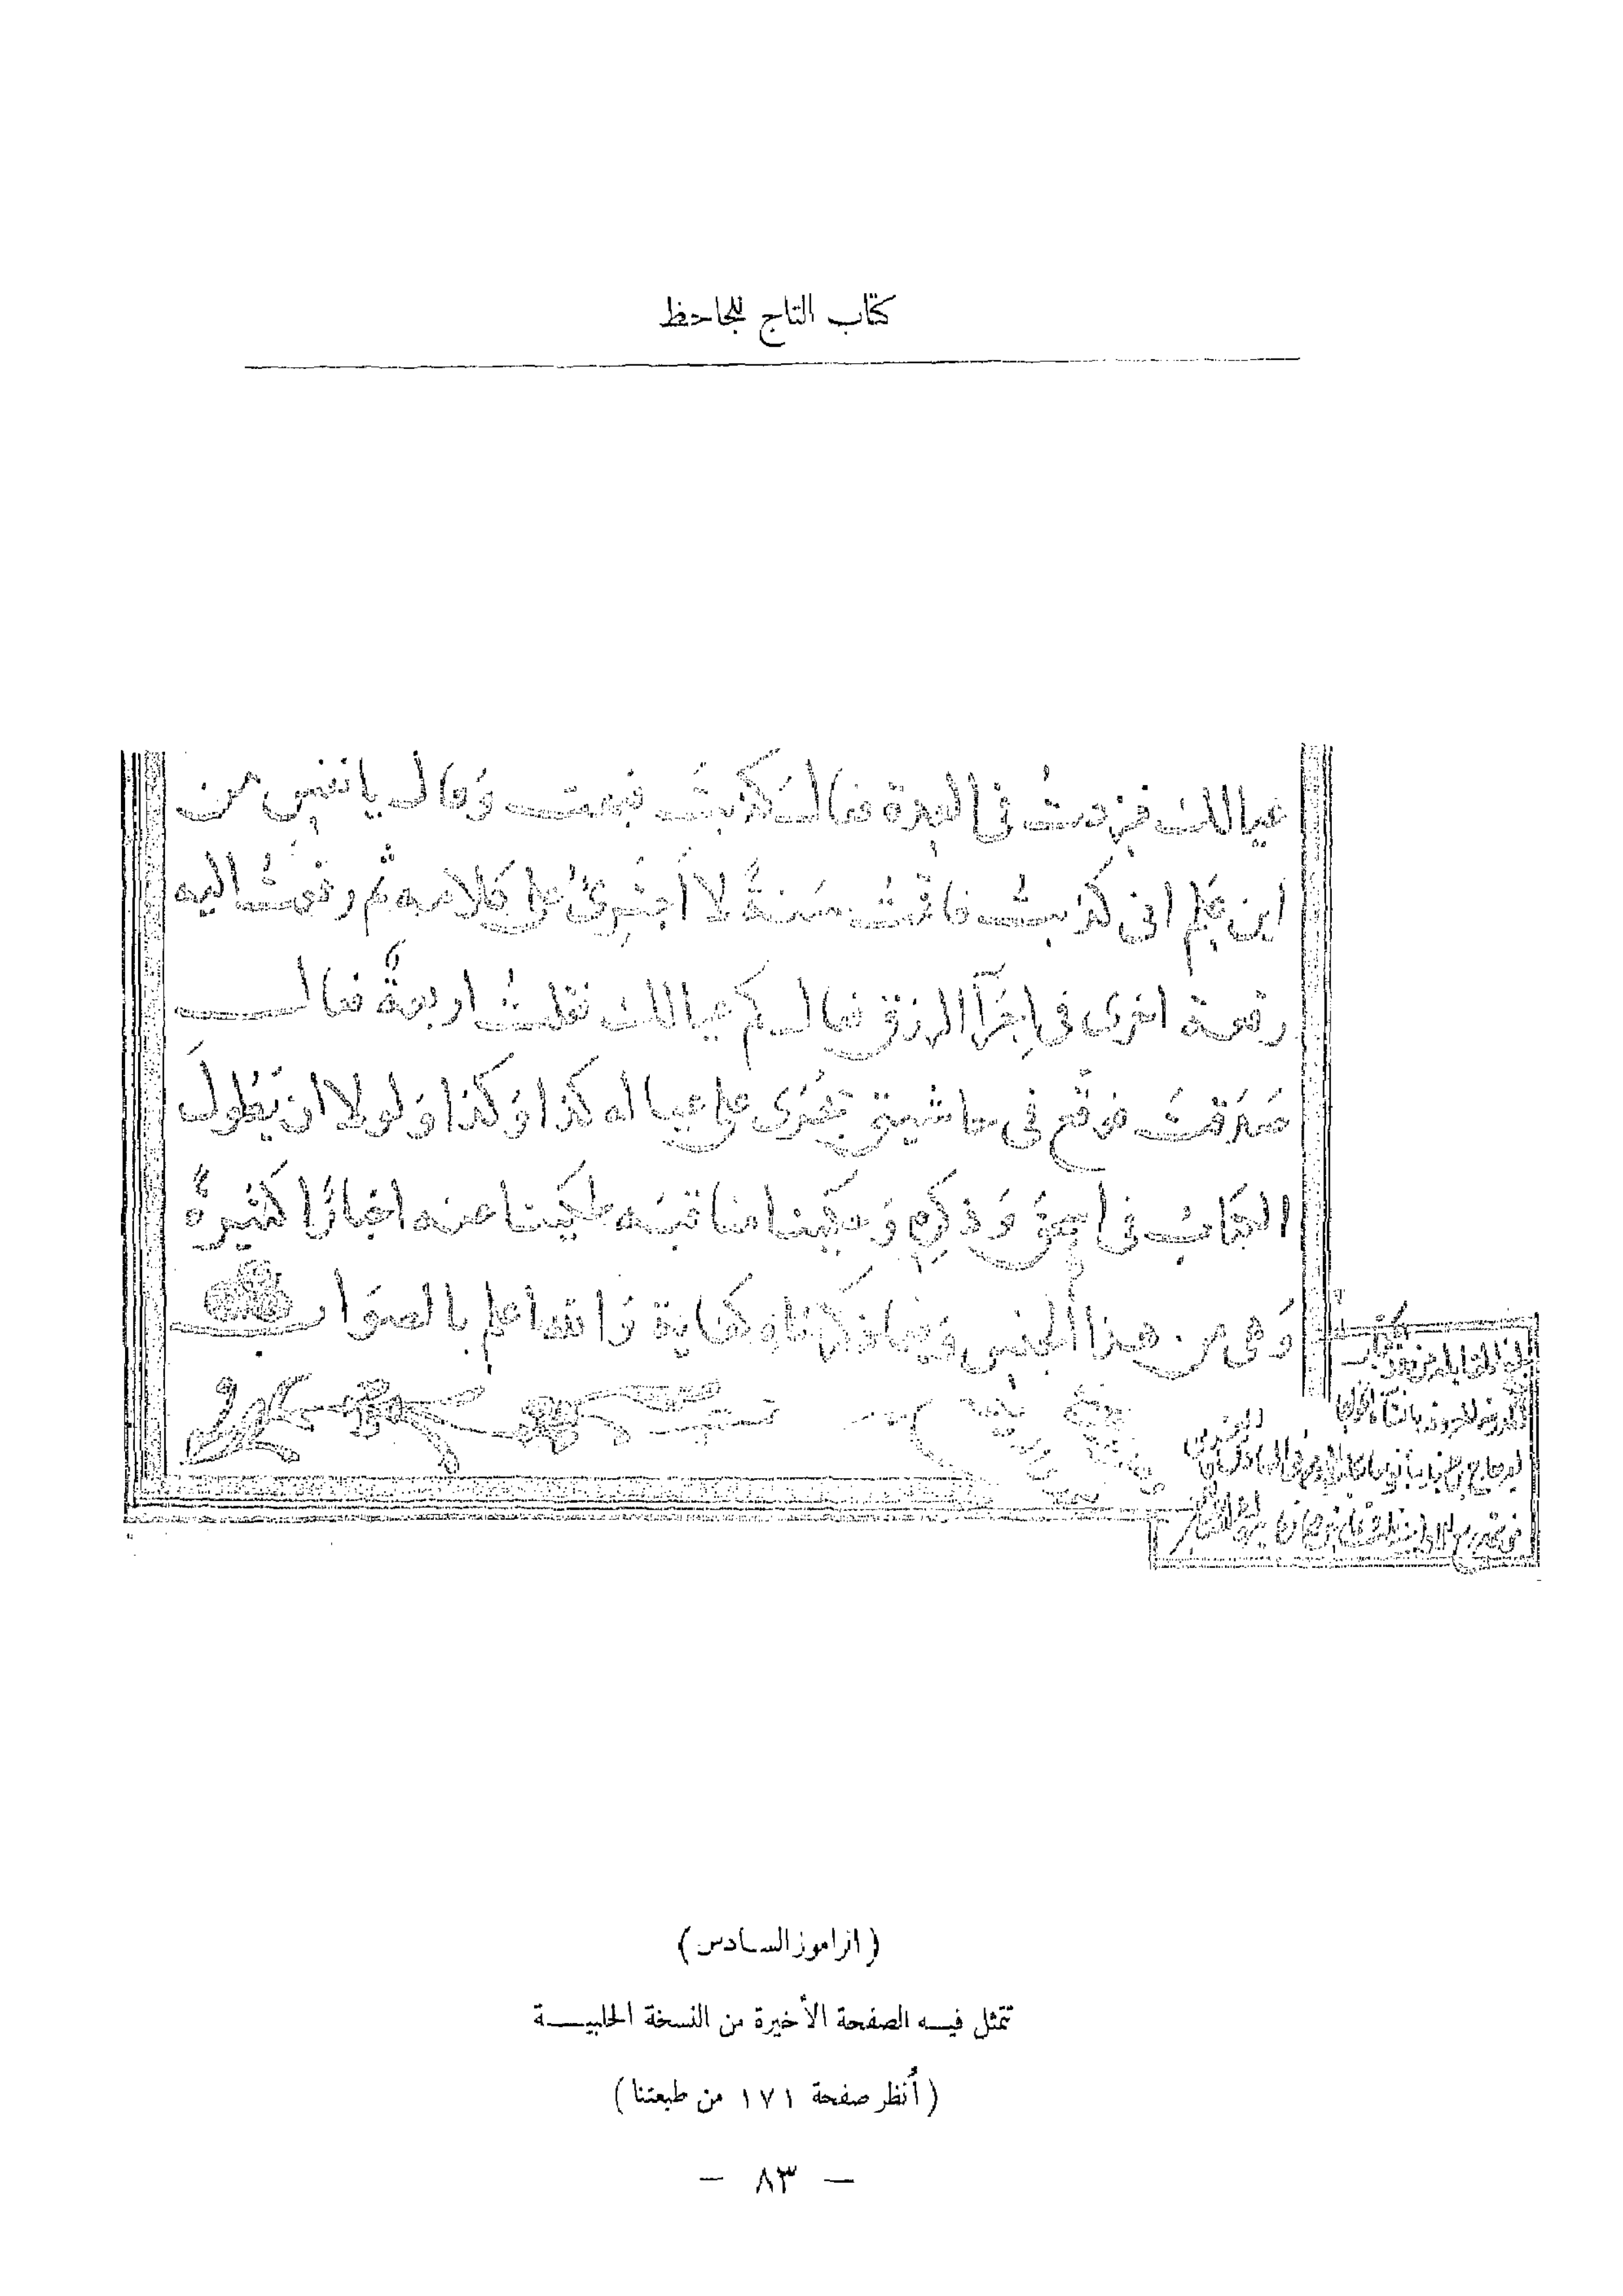 كتاب التاج للجاحظ
عيالك فزدتُ في العدة فقال كذبتَ فبهت وَقال يا نفسي من
اين علم اني كذبتُ فاقمتُ سَنةً لا اجترئُ على كلامه ثم رفعتُ اليه
رقعة اخرى في اجرآ الرزق فقال كم عيالك فقلتُ اربعةٌ فقال
صَدَقتَ فوقّع في حاشيتي يُجرَى على عياله كذا وَكذا وَلولا ان يَطُولَ
الكتابُ في اسحق وَذكره وَحكينا مناقبَه لحكينا عنه اخبارًا كثيرةً
وَهي من هذا الجنس وَفيما ذكرناه كفاية وَالله اعلم بالصوَاب
(الراموز السادس)
تتمثل فيه الصفحة الأخيرة من النسخة الحلبية
(أُنظر صفحة ١٧١ من طبعتنا)
— ٨٣ —